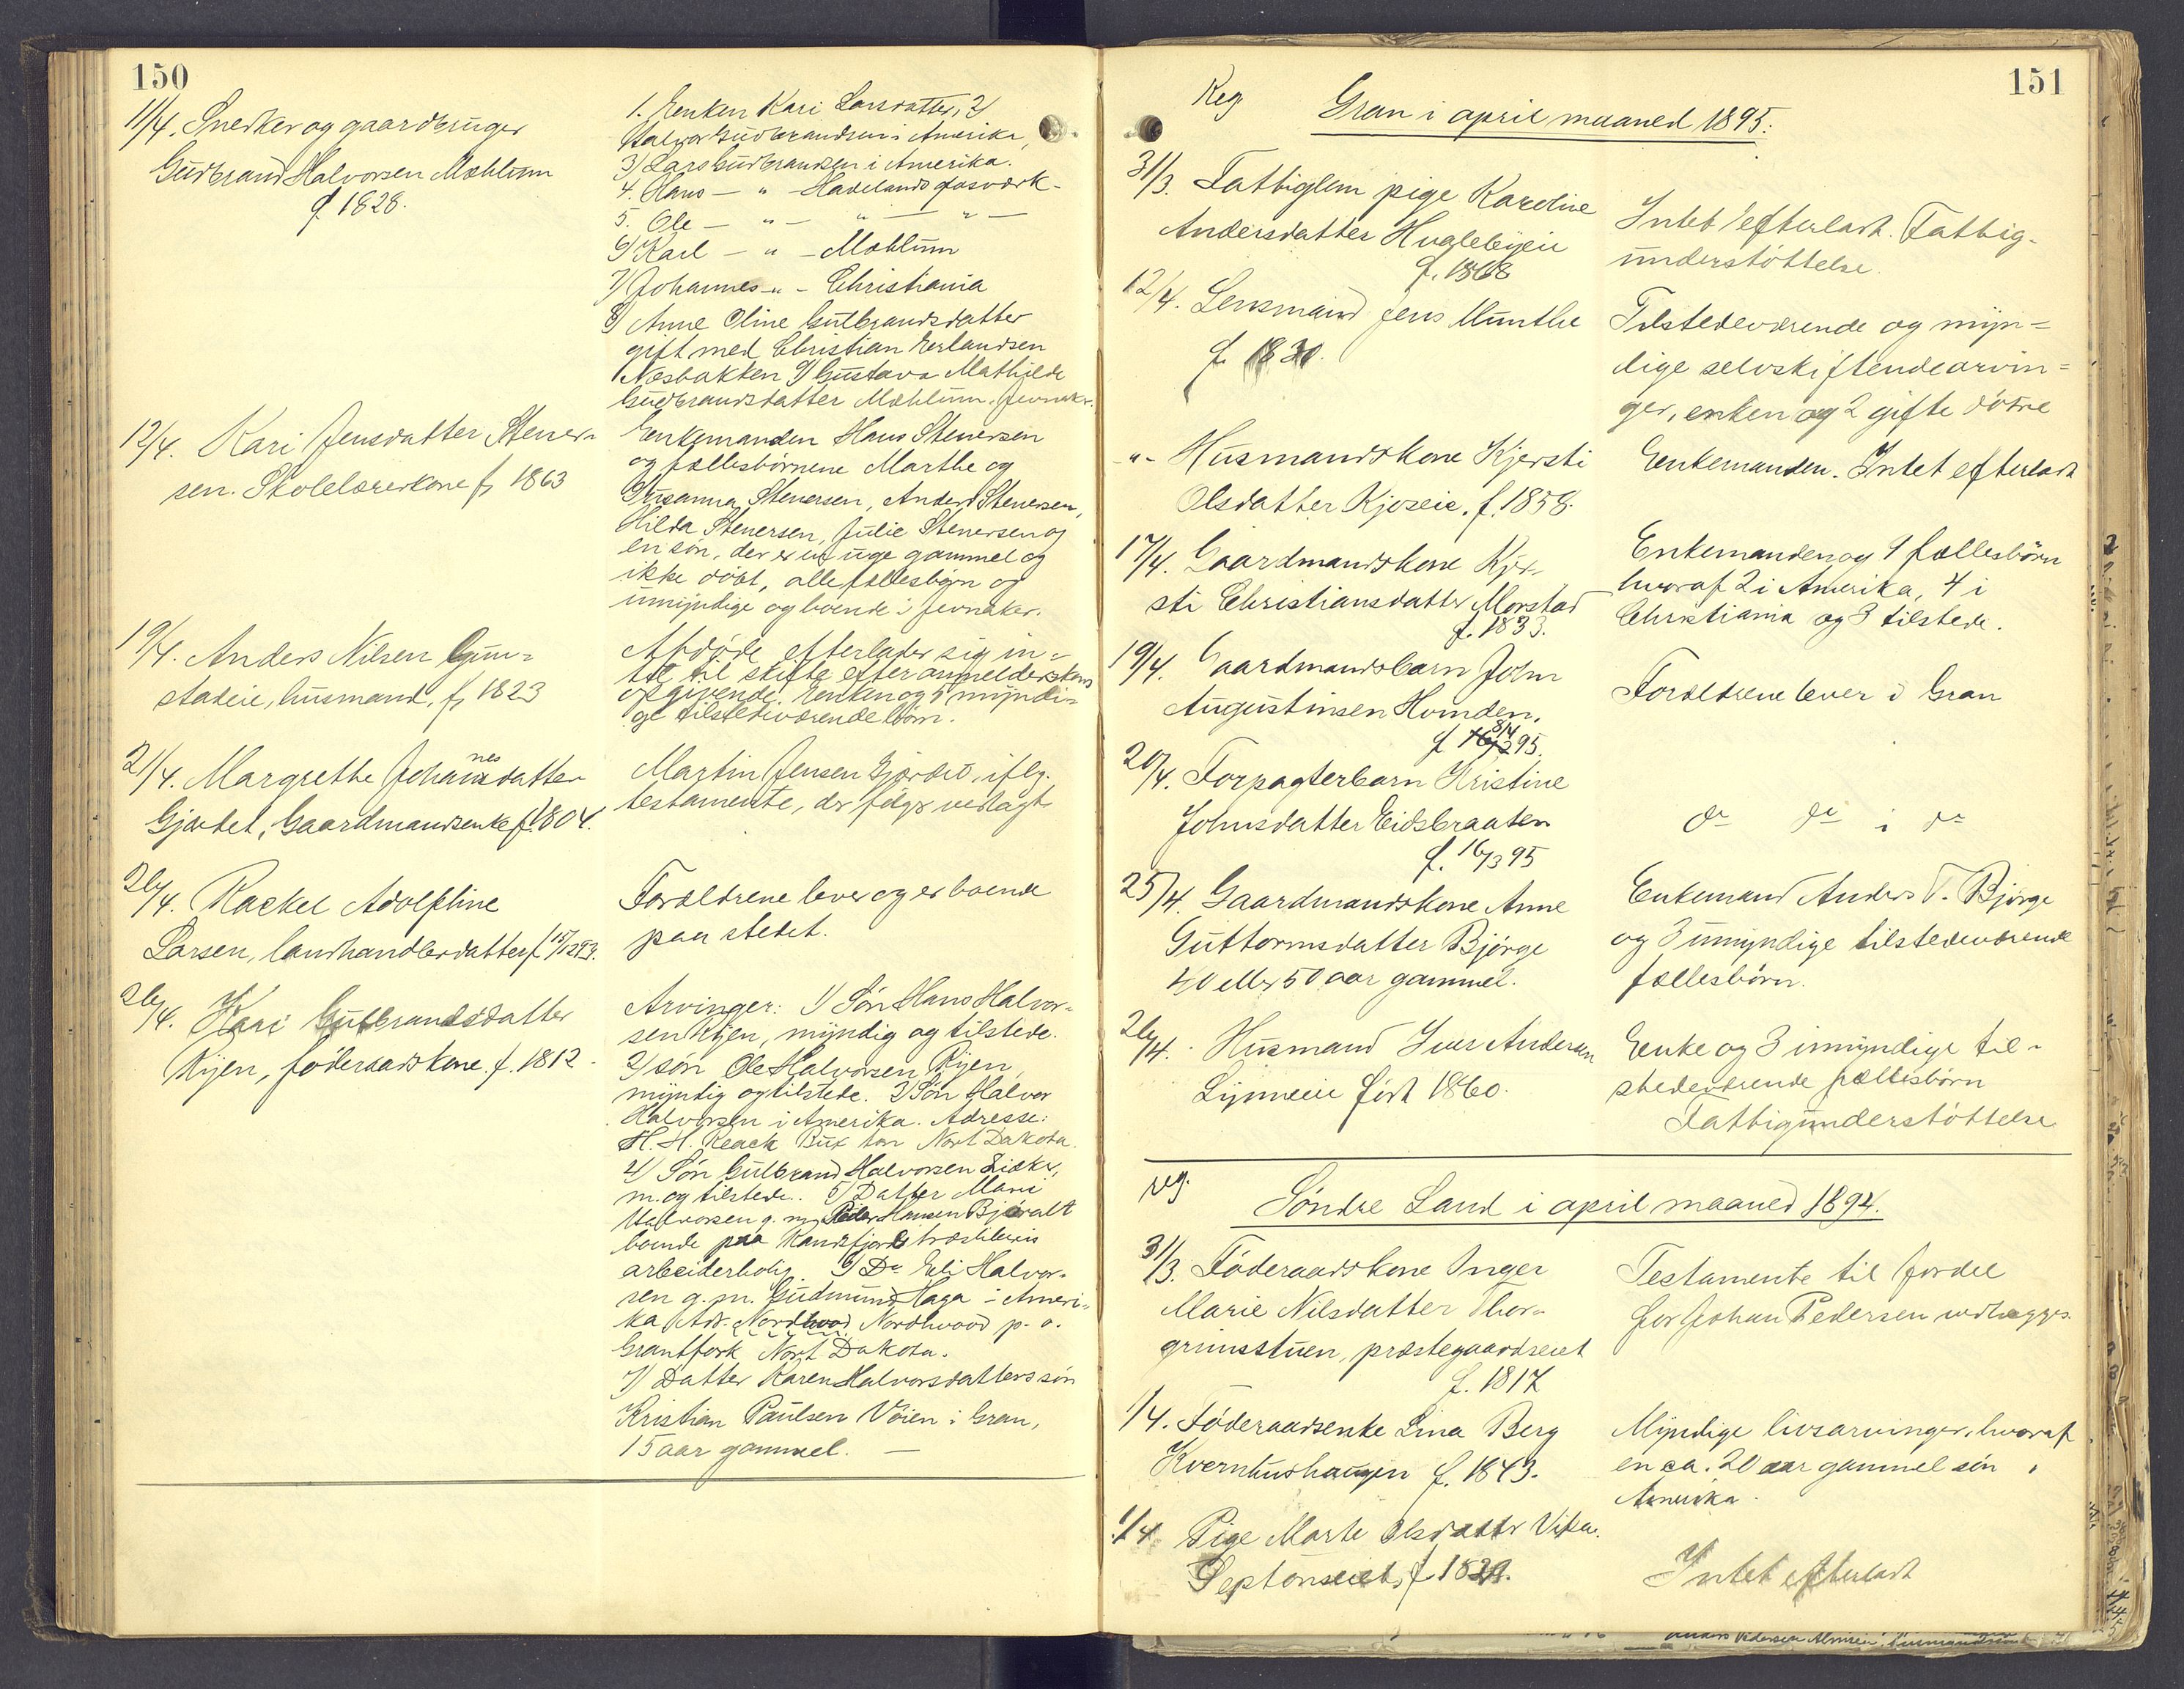 150
11/4. Snedker og gaardbruger
Gudbrand Halvorsen Mæhlum
f 1828.
1. Enken Kari Larsdatter, 2)
Halvor Gudbrandsen i Amerika,
3) Lars Gudbrandsen i Amerika.
4. Hans — " — Hadelands glasværk-
5. Ole — " — " — " —
6) Karl — " — Mæhlum
7) Johannes - " - Christiania
8) Anne Oline Gulbrandsdatter
gift med Christian Erlandsen
Næsbakken 9) Gustava Mathilde
Gudbrandsdatter Mæhlum. Jevnaker.
12/4. Kari Jensdatter Stener-
sen. Skolelærerkone f, 1863
Enkemanden Hans Stenersen
og fællesbørnene Marthe og
Susanna Stenersen, Anders Stenersen,
Hilda Stenersen, Julie Stenersen og
en søn, der er en uge gammel og
ikke døbt, alle fællesbørn og
umyndige og boende i Jevnaker.
19/4. Anders Nilsen Gun=
stadeie, husmand, f, 1823
Afdøde efterlader sig in=
tet til skifte efter anmelderskens
opgivende. Enken og 5 myndi=
ge tilstedeværende børn.
21/4. Margrethe Johannesdatter
Gjørdet, Gaardmandsenke f. 1804.
Martin Jensen Gjørdet, iflg.
testamente, der følger vedlagt
26/4. Rackel Adolfine
Larsen, landhandlerdatter f. 15/12 93.
Forældrene lever og er boende
paa stedet.
26/4. Kari Gulbrandsdatter
Ryen, føderaadskone. f. 1812.
Arvinger: 1) Søn Hans Halvor-
sen Ryen, myndig og tilstede.
2) søn Ole Halvorsen Ryen,
myndig og tilstede. 3) Søn Halvor
Halvorsen i Amerika. Adresse:
H. H. Reack Buxton Nort Dakota.
4) Søn Gulbrand Halvorsen Lidker,
m. og tilstede. 5) Datter Marie
Halvorsen g. m. Peder Hansen Bjøralt
boende paa Randsfjords træsliberis
arbeiderbolig. 6) Do Eli Halvor-
sen g. m. Gudmund Haga i Ameri-
ka Adr. Nordhood Nordhwood p. o.
Grantfork Nort Dakota.
7) Datter Karen Halvorsdatters søn
Kristian Paulsen Vøien i Gran,
15 aar gammel. —
151
Reg
Gran i april maaned 1895.
31/3. Fattiglem pige Karoline
Andersdatter Hvalebyeie
f. 1868
Intet efterladt. Fattig-
understøttelse.
12/4. Lensmand Jens Munthe
f. 1830.
Tilstedeværende og myn=
dige selvskiftendearvin=
ger, enken og 2 gifte døtre
-"- Husmandskone Kjersti
Olsdatter Kjoseie. f. 1858.
Enkemanden. Intet efterladt
17/4. Gaardmandskone Kjer-
sti Christiansdatter Morstad
f. 1833.
Enkemanden og 9 fællesbørn
hvoraf 2 i Amerika, 4 i
Christiania og 3 tilstede.
19/4. Gaardmandsbarn John
Augustinsen Homden.
f 8/4 95.
Forældrene lever i Gran
20/4. Forpagterbarn Kristine
Johnsdatter Eidsbraaten
f. 16/3 95
do do i do
25/4. Gaardmandskone Anne
Guttormsdatter Bjørge
40 eller 50 aar gammel.
Enkemand Anders T. Bjørge
og 3 umyndige tilstedeværende
fællesbørn.
26/4. Husmand Iver Andersen
Lynneeie født 1860.
Enke og 3 umyndige til-
stedeværende fællesbørn
Fattigunderstøttelse
reg.
Søndre Land i april maaned 1894.
31/3. Føderaadskone Inger
Marie Nilsdatter Thor-
grimsstuen, præstegaardseiet
f. 1817
Testamente til fordel
for Johan Pedersen vedlægges.
1/4. Føderaadsenke Lina Berg
Kvernhushaugen f. 1843.
Myndige livsarvinger, hvoraf
en ca. 20 aar gammel søn i
Amerika.
1/4 Pige Marte Olsdatter Vika.
Septonseiet, f. 1829.
Intet efterladt